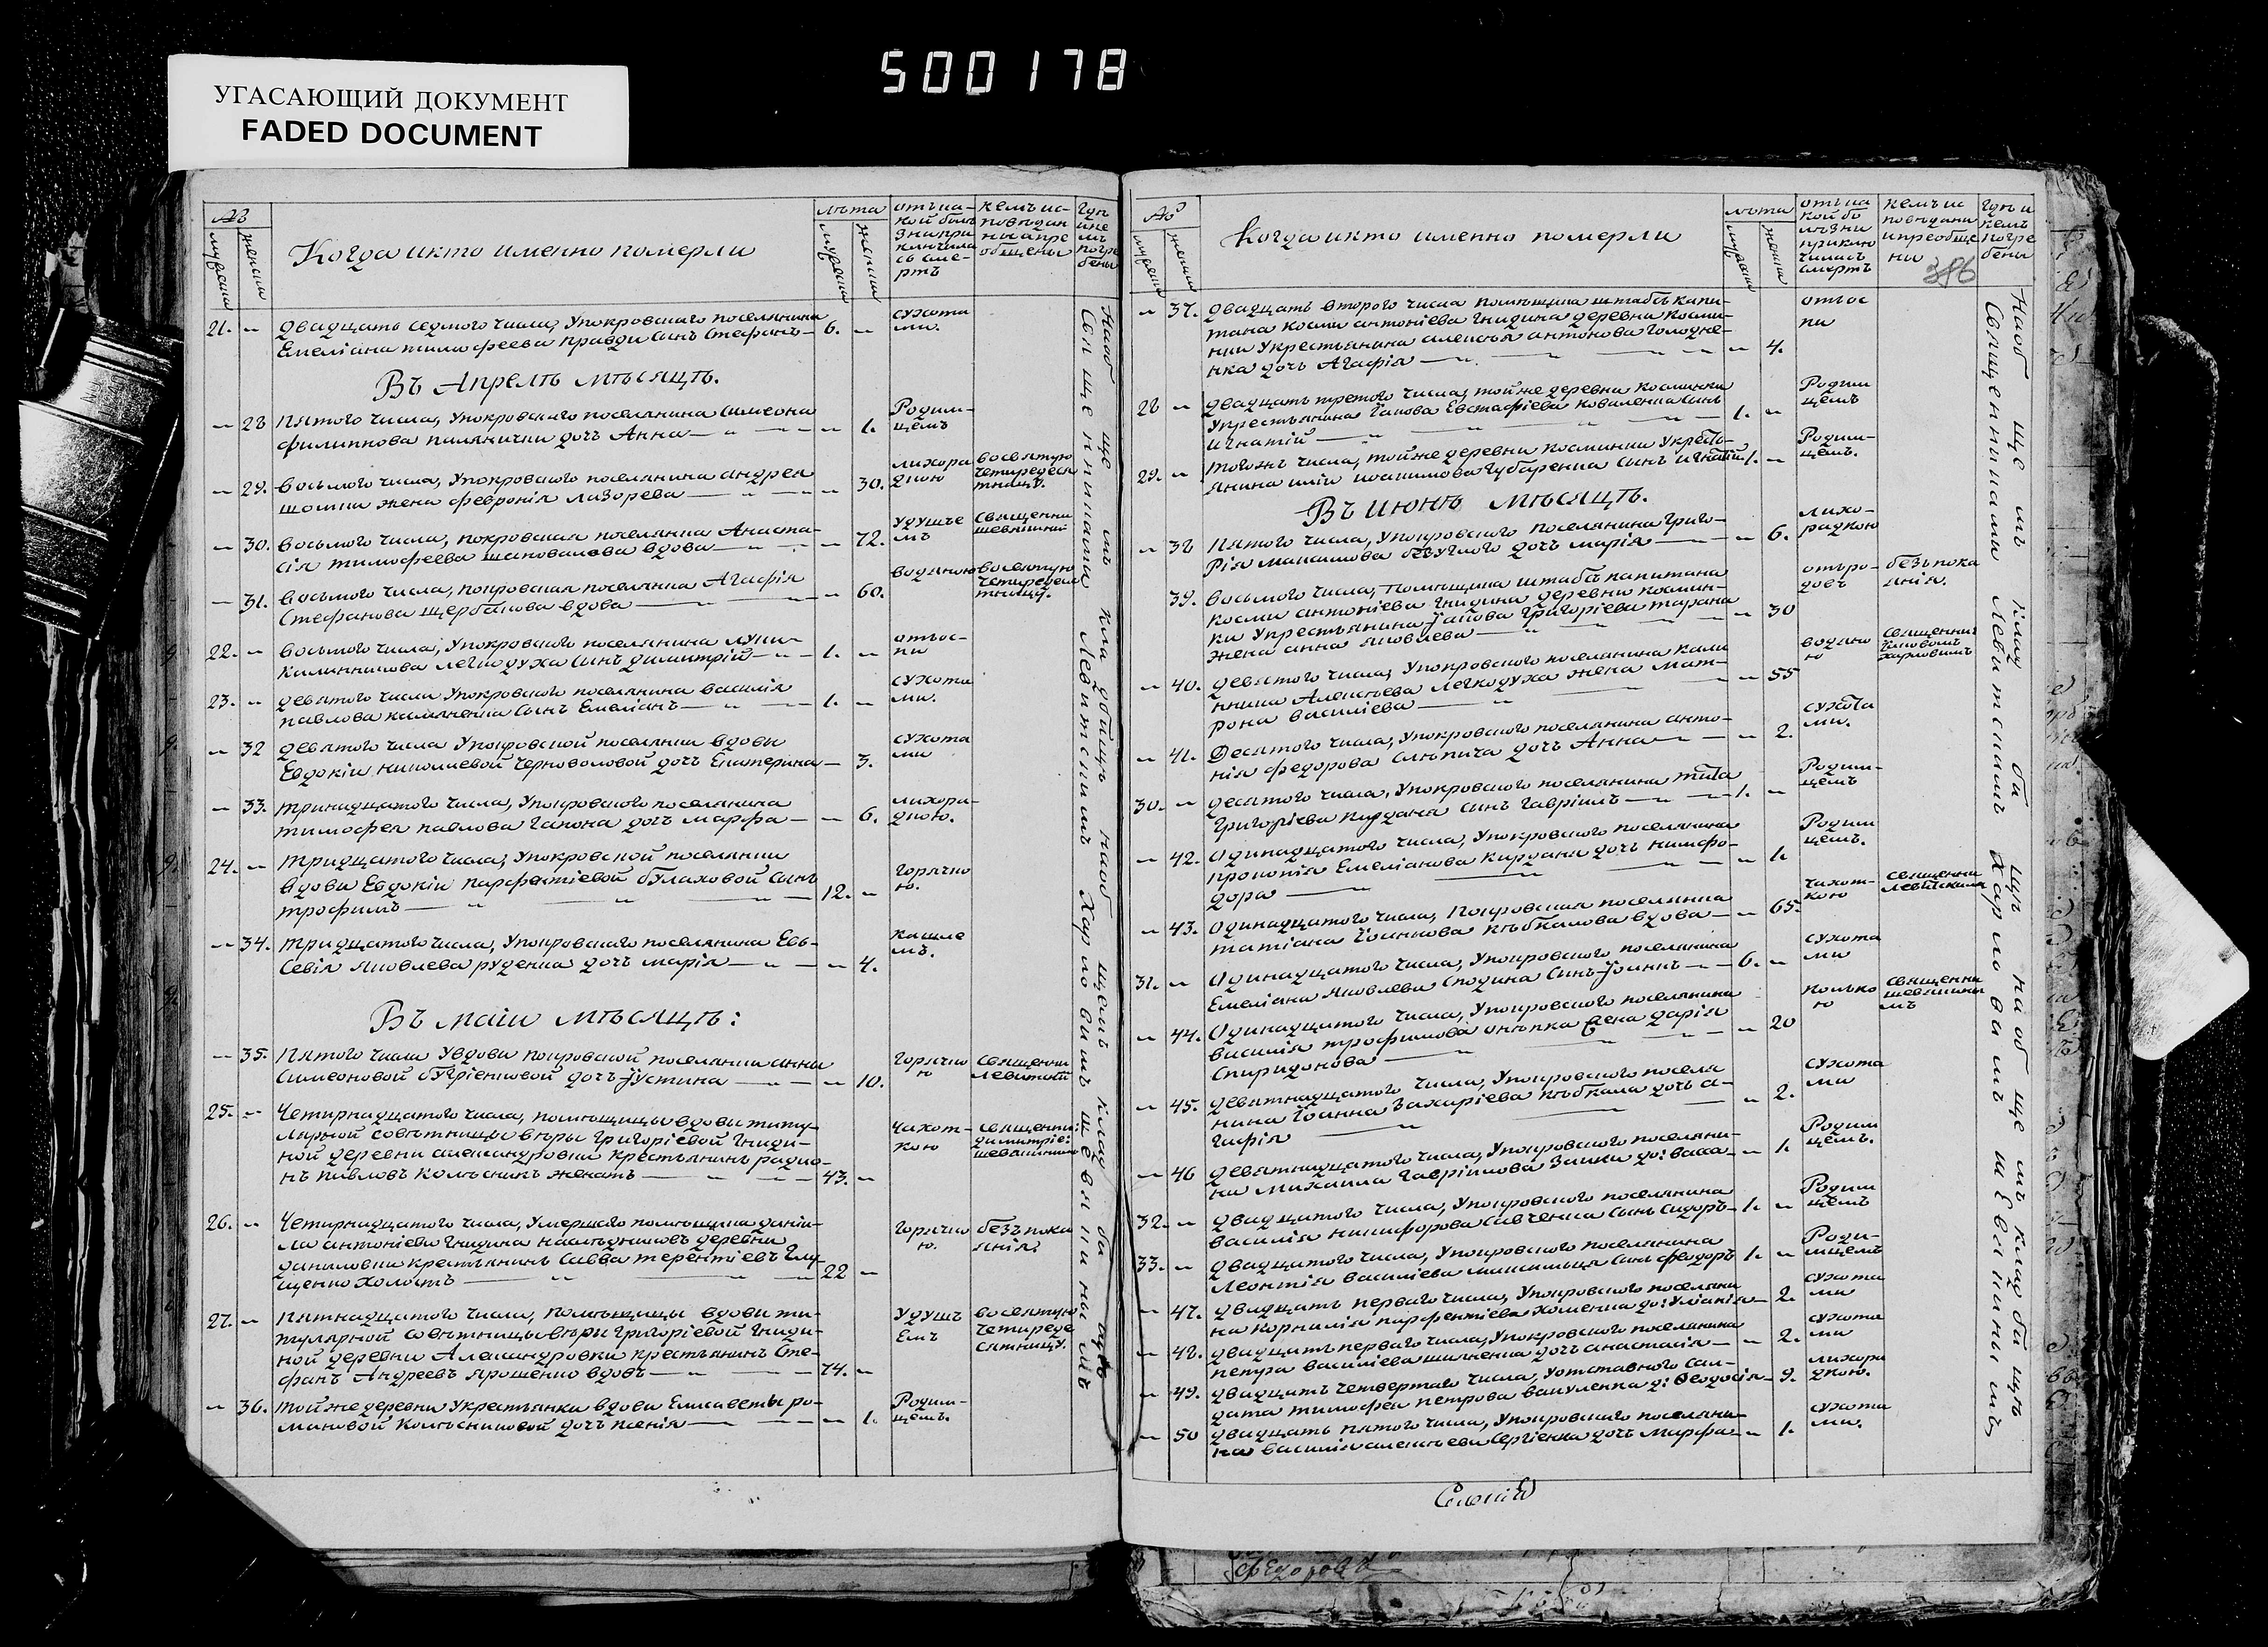 500178
УГАСАЮЩИЙ ДОКУМЕНТ
FADED DOCUMENT
№
мужеска
женска
Когда и кто именно померли
лѣта
мужеска
женска
отъ ка-
кой болѣ
зни при
ключила
сь сме-
рть
кемъ ис-
повѣдан
ны и прі
общены
гдѣ
и ке
мъ
погре
бены
21. — двадцать седмого числа, Упокровскаго поселянина
Емеліана тимофеева правди сынъ Стефанъ — 6. —
сухота
ми.
Въ Апрелѣ мѣсяцѣ.
— 28 Пятого числа, Упокровскаго поселянина Симеона
филиппова палянички дочь Анна — — 1.
Родим-
цемъ
— 29. восьмого числа, Упокровскаго поселянина андрея
жена февронія лазорева — — 30.
лихора
дкою
во святую
четыредеся
тницу.
— 30. восьмого числа, покровская поселянка Анаста-
сія тимофеева шаповалова вдова — — 72.
удушье
мъ
Священни
— 31. восьмого числа, покровская поселянка Агафія
Стефанова щербакова вдова — — 60.
водяною
во святую
четыредеся
тницу.
22. — восьмого числа, Упокровскаго поселянина
Каллиникова легкодуха сынъ димитрій — 1. —
отъ ос-
пи
23. — девятого числа Упокровского поселянина василія
павлова сынъ Емеліанъ — 1. —
сухота
ми.
— 32 девятого числа Упокровской поселянки вдовы
Евдокіи николаевой черноволовой дочь Екатерина — 3.
сухота
ми
— 33. тринадцатого числа, Упокровскаго поселянина
тимофея павлова Гапона дочь марфа — — 6.
лихора-
дкою.
24. — тридцатого числа, Упокровской поселянки
вдови Евдокіи парфентіевой булаховой сынъ
трофимъ — 12. —
горячко
ю.
— 34. тридцатого числа, Упокровскаго поселянина Евъ-
севія Яковлева руденка дочь марія — — 4.
кашле
мъ.
Въ маіи мѣсяцѣ:
— 35. Пятого числа Увдови покровской поселянки анны
Симеоновой дочь Іустина — — 10.
горячко
ю
Священни
25. — Четирнадцатого числа, помѣщицы вдовы титу
лярной совѣтницы вѣры григоріевой Гниди-
ной деревни александровки крестьянинъ родіо-
нъ павловъ колѣсникъ женатъ — 43. —
чахот-
кою
священни:
димитріе:
26. — Четирнадцатого числа, умершаго помѣщика даніи-
ла антоніева гнидина наслѣдниковъ деревни
даниловки крестьянинъ Савва терентіевъ Глу
щенко холостъ — 22 —
горячко
ю.
безъ пока
янія.
27. — Пятнадцатого числа, помѣщицы вдови ти-
тулярной совѣтницы вѣры григоріевой гниди-
ной деревни Александровки крестьянинъ Сте-
фанъ Андреевъ ярошенко вдовъ — 74. —
удушь
емъ
во святую
четыреде
сятницу.
— 36. той же деревни Укрестьянки вдови Елисаветы ро-
мановой колѣсниковой дочь ксенія — — 1.
Родим-
цемъ.
На об ще мъ кла дбищѣ
Священниками Левитскимъ Харловимъ
№
мужеска
женска
Когда и кто именно померли
лѣта
мужеска
женска
отъ ка
кой бо
лѣзни
приклю
чилась
смерть
кемъ ис
повѣданы
и преобще
ни
386
гдѣ и
кемъ
погре
бены
— 37. двадцать второго числа помѣщика штабсъ капи-
тана косми антоніева гнидина деревни косми-
нки Укрестьянина алексѣя антонова голодне-
нка дочь Агафія — — 4.
отъ ос
пи
28 — двадцать третого числа, той же деревни косминки
Укрестьянина Іакова Евстафіева коваленка сынъ
игнатій — 1. —
Родим
цемъ
29. — того жъ числа, той же деревни косминки Укресть-
янина иліи губаренка сынъ игнатій 1. —
Родим-
цемъ.
Въ июнѣ мѣсяцѣ.
— 38 Пятого числа, Упокровскаго поселянина григо-
рія максимова безуглого дочь марія — — 6.
лихо-
радкою
39. восьмого числа, помѣщика штабсъ капитана
косми антоніева гнидина деревни космин-
ки Укрестьянина Іакова григоріева тарана
жена анна яковлева — — 30
отъ ро-
довъ
безъ пока
янія.
— 40. девятого числа, Упокровскаго поселянина кали
нника Алексѣева легкодуха жена мат-
рона василіева — — 55
водяно
ю
священни:
— 41. Десятого числа, Упокровского поселянина анто-
нія федорова дочь Анна — — 2.
сухота
ми.
30. — десятого числа, Упокровского поселянина тита
григоріева кирдана сынъ гавріилъ — 1. —
Родим-
цемъ
— 42. Одинадцатого числа, Упокровского поселянина
прокопія Емеліанова кирдана дочь нимфо-
дора — — 1.
Родим
цемъ.
— 43. одинадцатого числа, Покровская поселянка
татіана вдова — — 65.
чахот-
кою
священни
31. — Одинадцатого числа, Упокровского поселянина
Емеліана яковлева сынъ Іоаннъ — 6. —
сухота
ми
— 44. Одинадцатого числа, Упокровского поселянина
василія трофимова жена дарія
Спиридонова — — 20
священни
— 45. девятнадцатого числа, Упокровского поселя
нина Іоанна захаріева дочь а-
гафія — — 2.
сухота
ми
— 46 девятнадцатого числа, Упокровского поселяни-
на михаила гавріилова — 1.
Родим
цемъ.
32. — двадцатого числа, Упокровского поселянина
василія никифорова савченка сынъ сидоръ — 1. —
Родим
цемъ
33. — двадцатого числа, Упокровского поселянина
Леонтія василіева сынъ феодоръ 1. —
Роди-
мцемъ
— 47. двадцать первого числа, Упокровского поселяни
на корнилія парфентіева хоменка до: Уліанія — 2.
сухота
ми
— 48. двадцать первого числа, Упокровского поселянина
петра василіева дочь анастасія — — 2.
сухота
ми
— 49. двадцать четвертаго числа, Уотставного сол-
дата тимофея петрова вакуленка д: Феодосія — 9.
лихора
дкою.
— 50 двадцать пятого числа, Упокровского поселяни-
на василія алексѣева Сергіенка дочь марфа — 1.
сухота
ми.
На об ще мъ клад би щѣ
Священниками Левитскимъ Харловимъ
Федорова